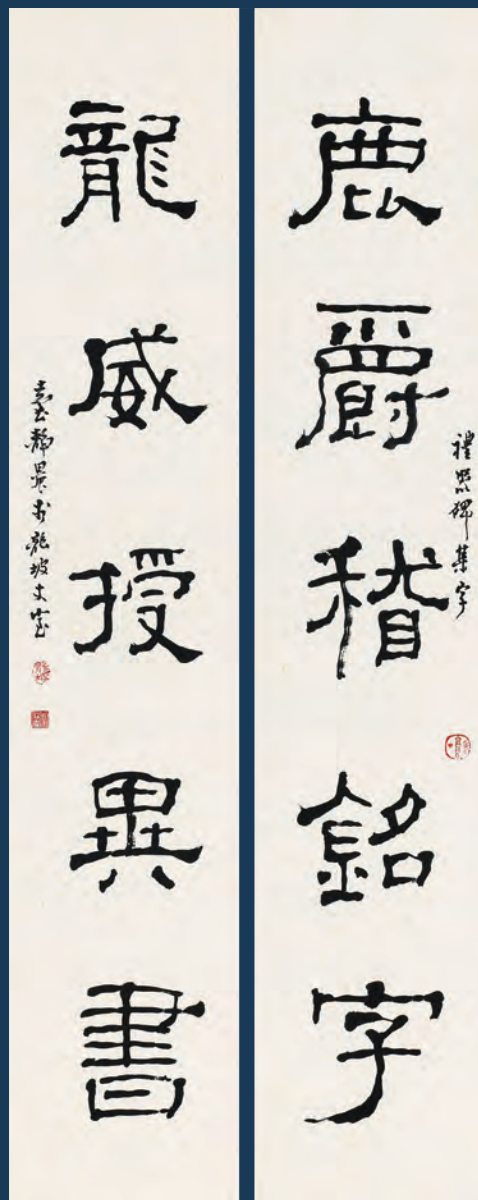 鹿爵稽銘字
禮器碑集字
龍威授異書
臺靜農於龍坡丈室